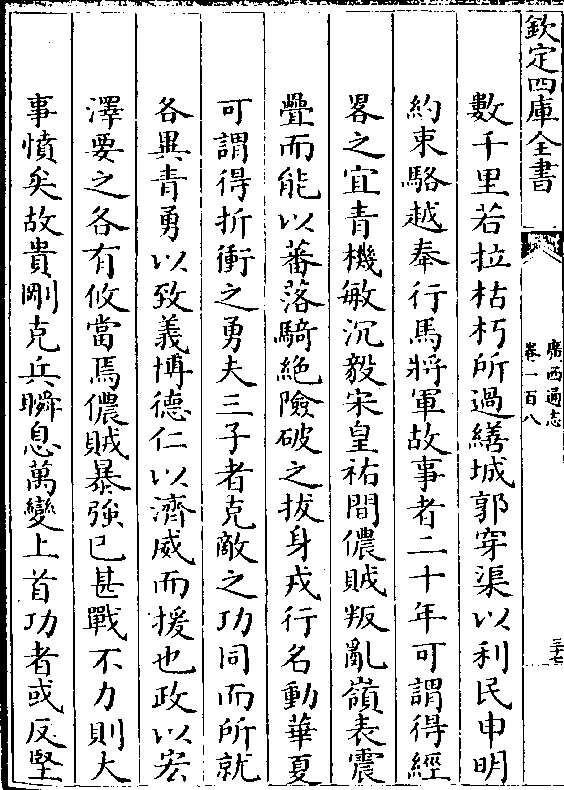 欽定四庫全書
廣西通志
卷一百八
三十七
數千里若拉枯朽所過繕城郭穿渠以利民申明
約束駱越奉行馬將軍故事者二十年可謂得經
畧之宜青機敏沉毅宋皇祐間儂賊叛亂嶺表震
疊而能以蕃落騎絶險破之拔身戎行名動華夏
可謂得折衝之勇夫三子者克敵之功同而所就
各異青勇以致義博德仁以濟威而援也政以宏
澤要之各有攸當焉儂賊暴強已甚戰不力則大
事憤矣故貴剛克兵瞬息萬變上首功者或反堅